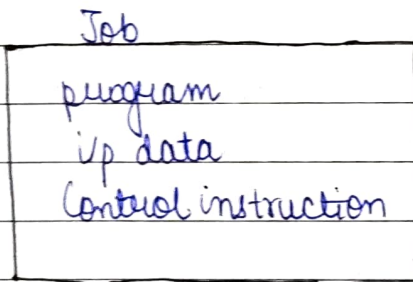 Job
program
i/p data
Control instruction